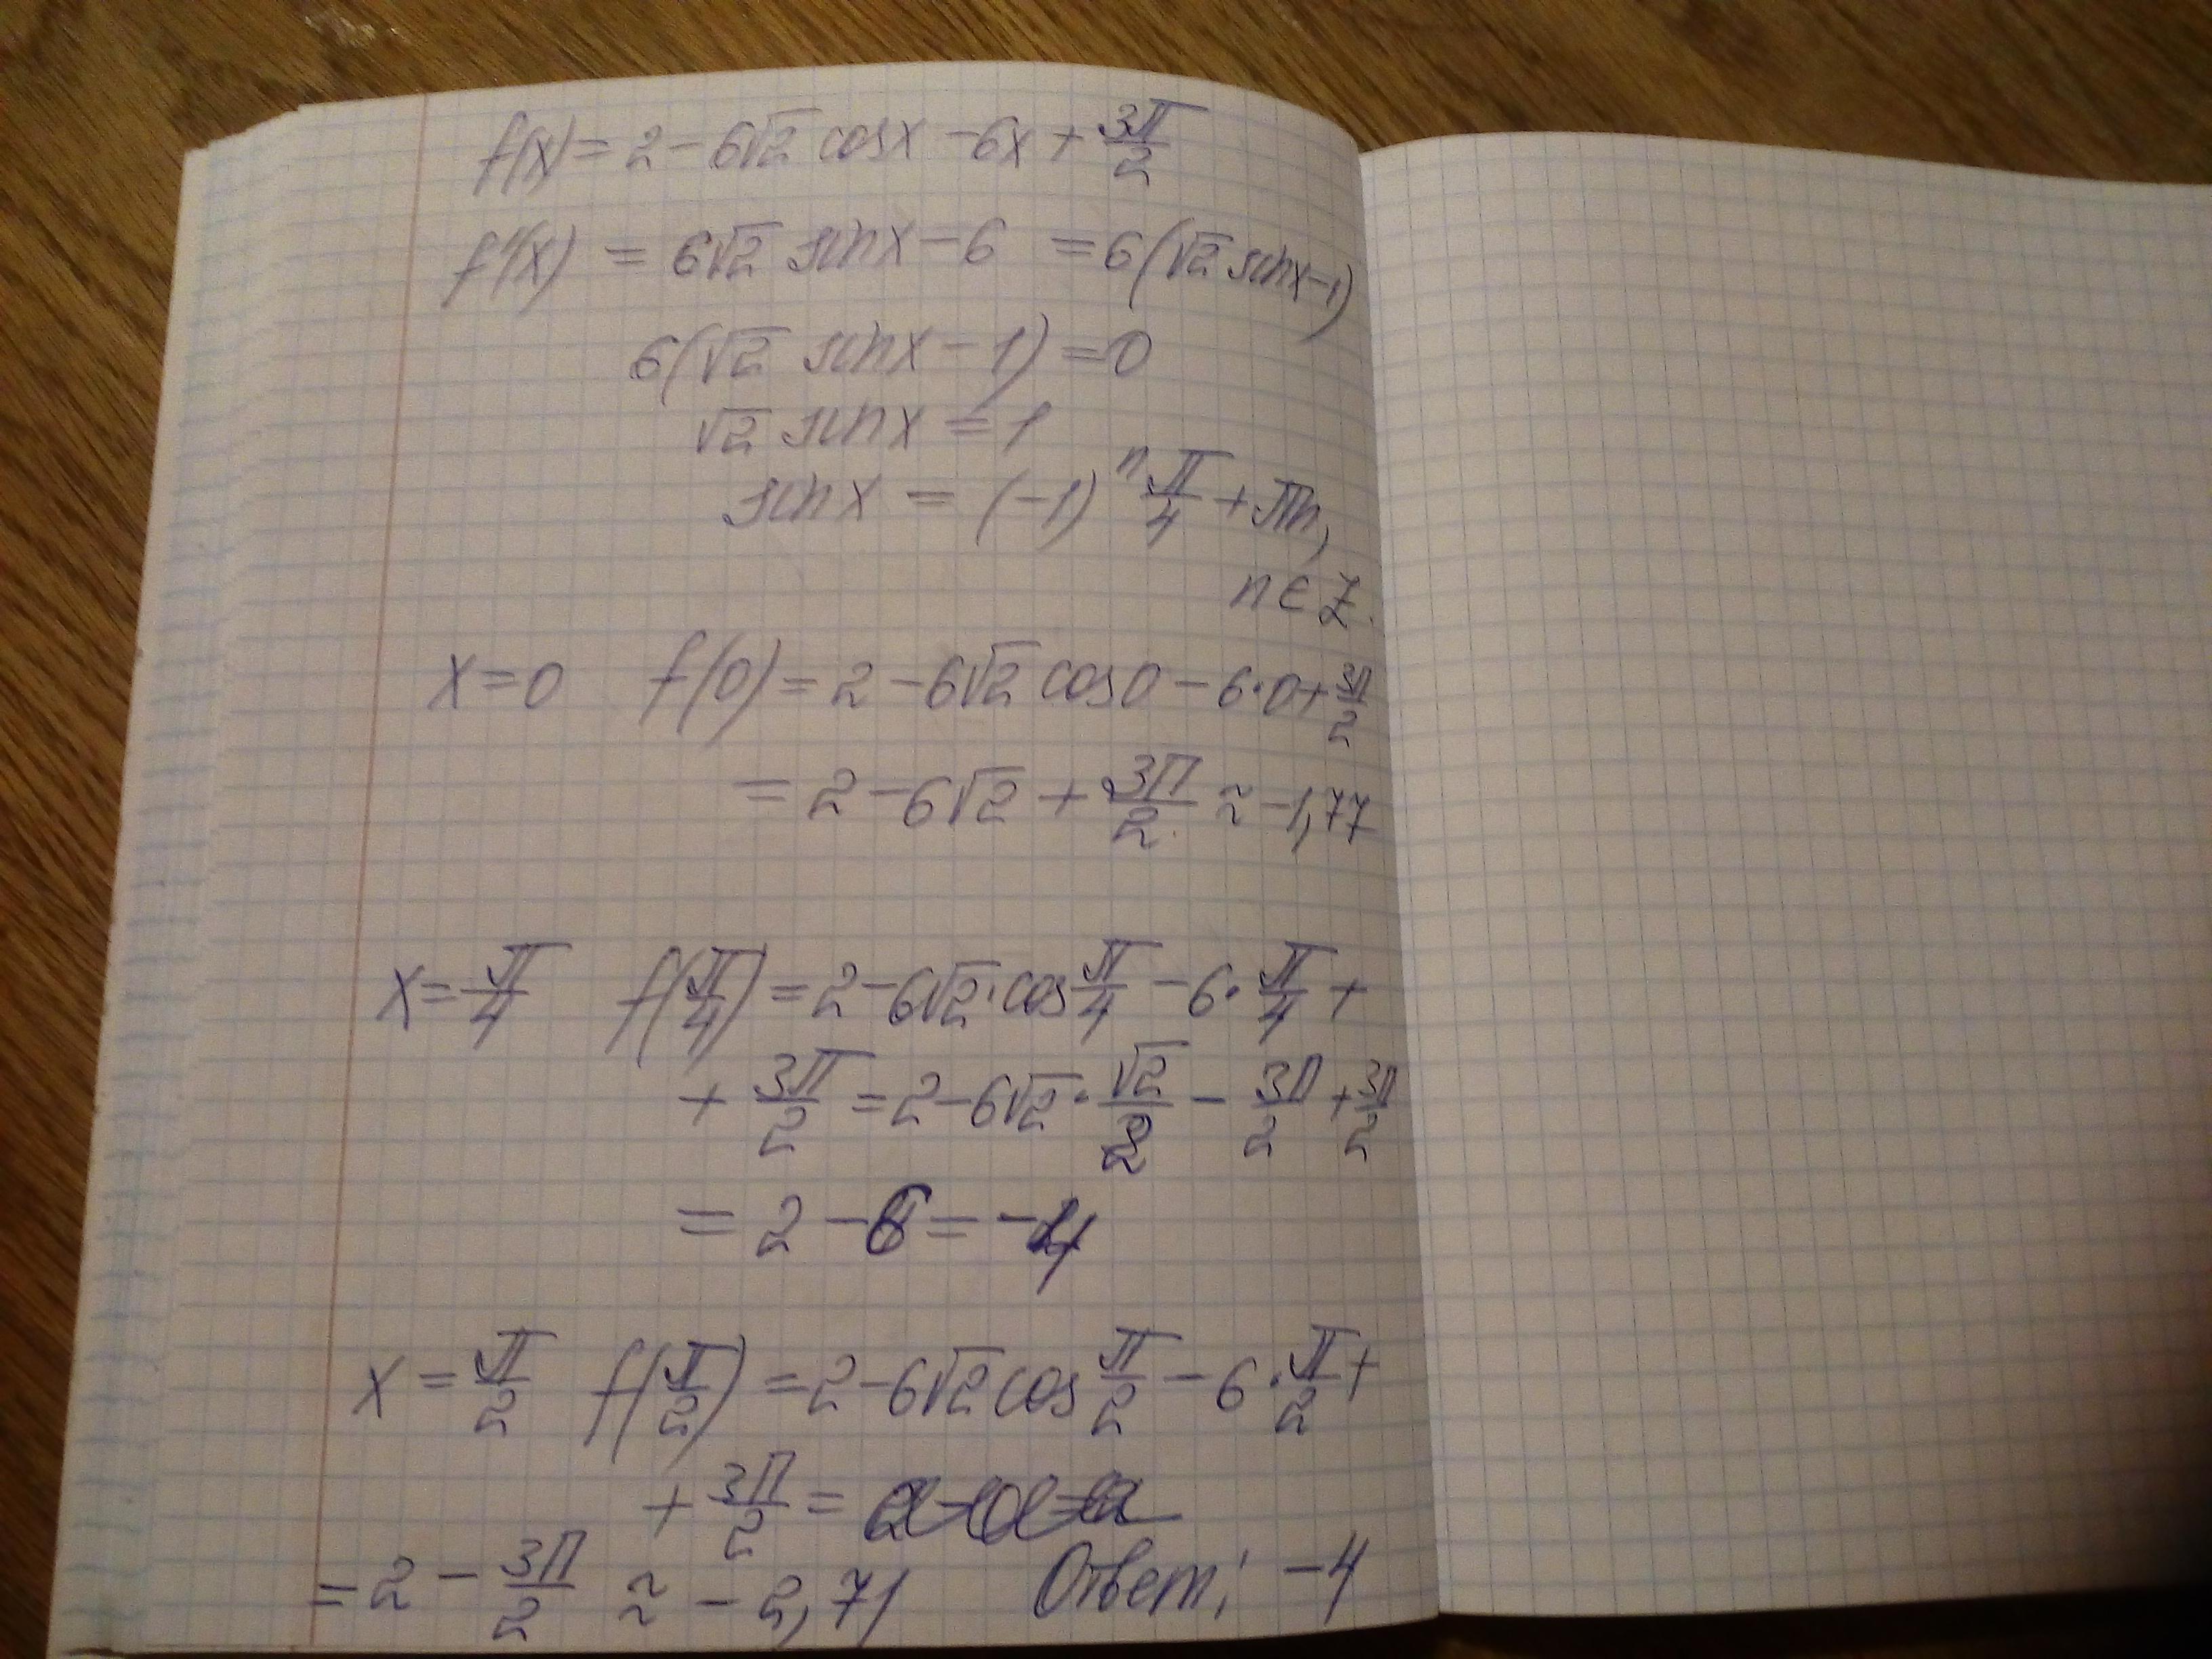 f(x) = 2 - 6√2 cosx - 6x + 3π/2
f'(x) = 6√2 sinx - 6 = 6(√2 sinx - 1)
6(√2 sinx - 1) = 0
√2 sinx = 1
sinx = (-1)^n π/4 + πn,
n ∈ Z.
x = 0 f(0) = 2 - 6√2 cos0 - 6·0 + 3π/2
= 2 - 6√2 + 3π/2 ≈ -1,77
x = π/4 f(π/4) = 2 - 6√2·cos π/4 - 6·π/4 +
+ 3π/2 = 2 - 6√2·√2/2 - 3π/2 + 3π/2
= 2 - 6 = -4
x = π/2 f(π/2) = 2 - 6√2 cos π/2 - 6·π/2 +
+ 3π/2 =
= 2 - 3π/2 ≈ -2,71 Ответ: -4